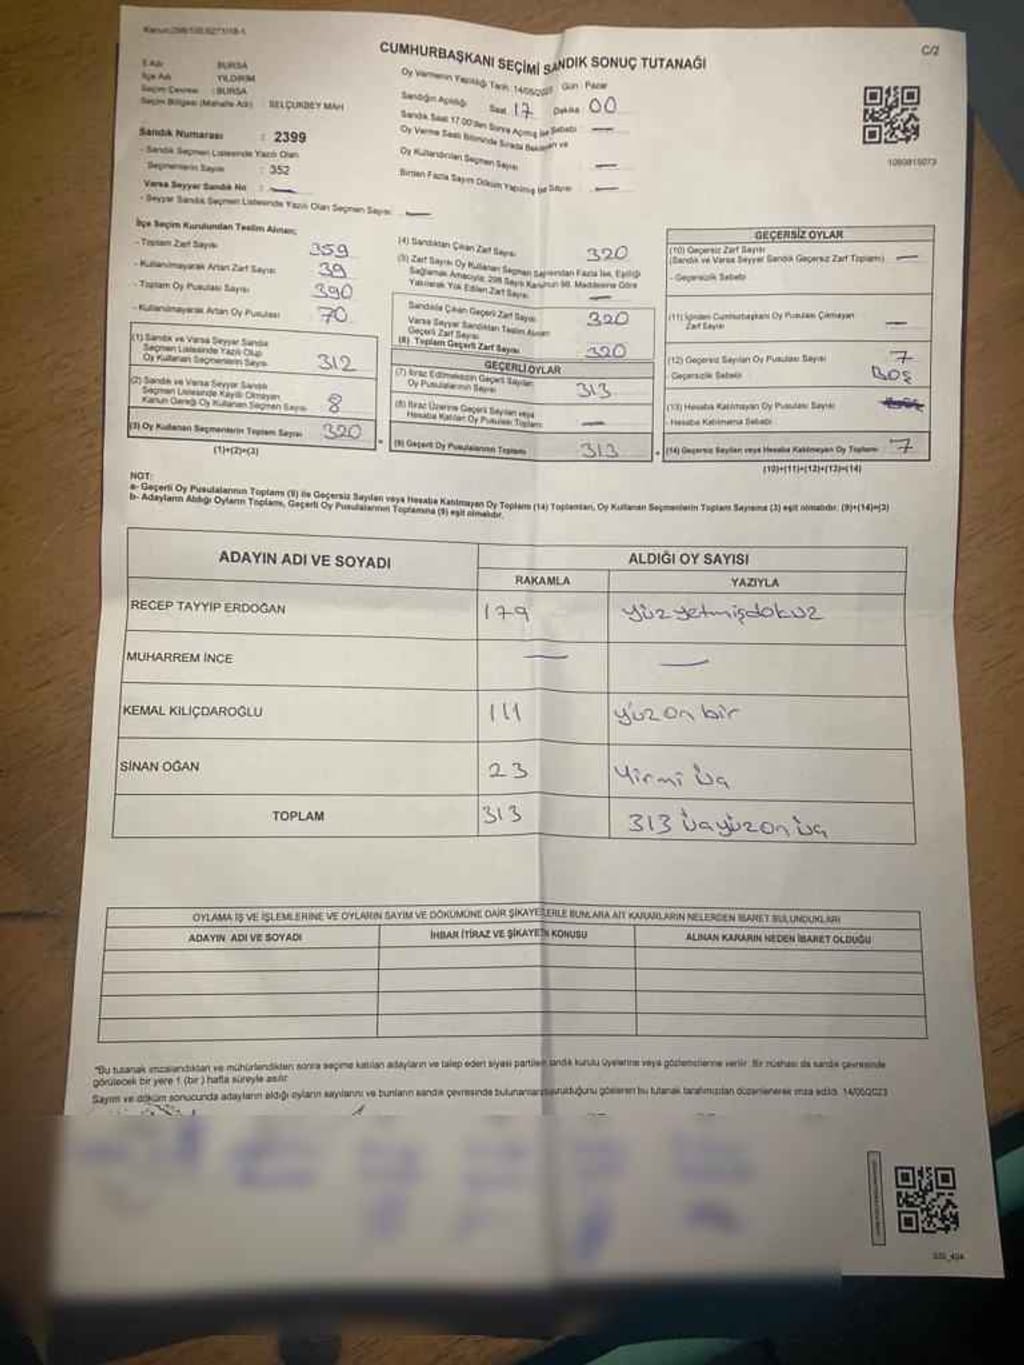 C/2
CUMHURBAŞKANI SEÇİMİ SANDIK SONUÇ TUTANAĞI
İl Adı : BURSA
İlçe Adı : YILDIRIM
Seçim Çevresi : BURSA
Seçim Bölgesi (Mahalle Adı) SELÇUKBEY MAH
Sandık Numarası : 2399
- Sandık Seçmen Listesinde Yazılı Olan
Seçmenlerin Sayısı : 352
Varsa Seyyar Sandık No : —
- Seyyar Sandık Seçmen Listesinde Yazılı Olan Seçmen Sayısı —
Oy Vermenin Yapıldığı Tarih 14/05/2023 Gün : Pazar
Sandığın Açıldığı Saat 17 Dakika 00
Sandık Saat 17.00'den Sonra Açılmış İse Sebebi —
Oy Verme Saati Bitiminde Sırada Bekleyen ve
Oy Kullandırılan Seçmen Sayısı —
Birden Fazla Sayım Döküm Yapılmış İse Sayısı —
1090815073
İlçe Seçim Kurulundan Teslim Alınan;
- Toplam Zarf Sayısı 359
- Kullanılmayarak Artan Zarf Sayısı 39
- Toplam Oy Pusulası Sayısı 390
- Kullanılmayarak Artan Oy Pusulası 70
(1) Sandık ve Varsa Seyyar Sandık
Seçmen Listesinde Yazılı Olup
Oy Kullanan Seçmenlerin Sayısı 312
(2) Sandık ve Varsa Seyyar Sandık
Seçmen Listesinde Kayıtlı Olmayan
Kanun Gereği Oy Kullanan Seçmen Sayısı 8
(3) Oy Kullanan Seçmenlerin Toplam Sayısı 320
(1)+(2)=(3)
(4) Sandıktan Çıkan Zarf Sayısı 320
(5) Zarf Sayısı Oy Kullanan Seçmen Sayısından Fazla İse, Eşitliği
Sağlamak Amacıyla, 298 Sayılı Kanunun 98. Maddesine Göre
Yakılarak Yok Edilen Zarf Sayısı —
Sandıkta Çıkan Geçerli Zarf Sayısı 320
Varsa Seyyar Sandıktan Teslim Alınan
Geçerli Zarf Sayısı
(6) Toplam Geçerli Zarf Sayısı 320
GEÇERLİ OYLAR
(7) İtiraz Edilmeksizin Geçerli Sayılan
Oy Pusulalarının Sayısı 313
(8) İtiraz Üzerine Geçerli Sayılan veya
Hesaba Katılan Oy Pusulası Toplamı —
(9) Geçerli Oy Pusulalarının Toplamı 313
GEÇERSİZ OYLAR
(10) Geçersiz Zarf Sayısı
(Sandık ve Varsa Seyyar Sandık Geçersiz Zarf Toplamı) —
- Geçersizlik Sebebi
(11) İçinden Cumhurbaşkanı Oy Pusulası Çıkmayan
Zarf Sayısı —
(12) Geçersiz Sayılan Oy Pusulası Sayısı 7
- Geçersizlik Sebebi BOŞ
(13) Hesaba Katılmayan Oy Pusulası Sayısı
- Hesaba Katılmama Sebebi
(14) Geçersiz Sayılan veya Hesaba Katılmayan Oy Toplamı 7
(10)+(11)+(12)+(13)=(14)
NOT:
a- Geçerli Oy Pusulalarının Toplamı (9) ile Geçersiz Sayılan veya Hesaba Katılmayan Oy Toplamı (14) Toplamları, Oy Kullanan Seçmenlerin Toplam Sayısına (3) eşit olmalıdır. (9)+(14)=(3)
b- Adayların Aldığı Oyların Toplamı, Geçerli Oy Pusulalarının Toplamına (9) eşit olmalıdır.
ADAYIN ADI VE SOYADI ALDIĞI OY SAYISI
RAKAMLA YAZIYLA
RECEP TAYYİP ERDOĞAN 179 yüzyetmişdokuz
MUHARREM İNCE — —
KEMAL KILIÇDAROĞLU 111 yüzonbir
SİNAN OĞAN 23 Yirmi üç
TOPLAM 313 313 üçyüzonüç
OYLAMA İŞ VE İŞLEMLERİNE VE OYLARIN SAYIM VE DÖKÜMÜNE DAİR ŞİKAYETLERLE BUNLARA AİT KARARLARIN NELERDEN İBARET BULUNDUKLARI
ADAYIN ADI VE SOYADI İHBAR İTİRAZ VE ŞİKAYETİN KONUSU ALINAN KARARIN NEDEN İBARET OLDUĞU
*Bu tutanak imzalandıktan ve mühürlendikten sonra seçime katılan adayların ve talep eden siyasi partilerin sandık kurulu üyelerine veya gözlemcilerine verilir. Bir nüshası da sandık çevresinde
görülecek bir yere 1 (bir) hafta süreyle asılır.
Sayım ve döküm sonucunda adayların aldığı oyların sayılarını ve bunların sandık çevresinde bulunanlara duyurulduğunu gösteren bu tutanak tarafımızdan düzenlenerek imza edildi. 14/05/2023